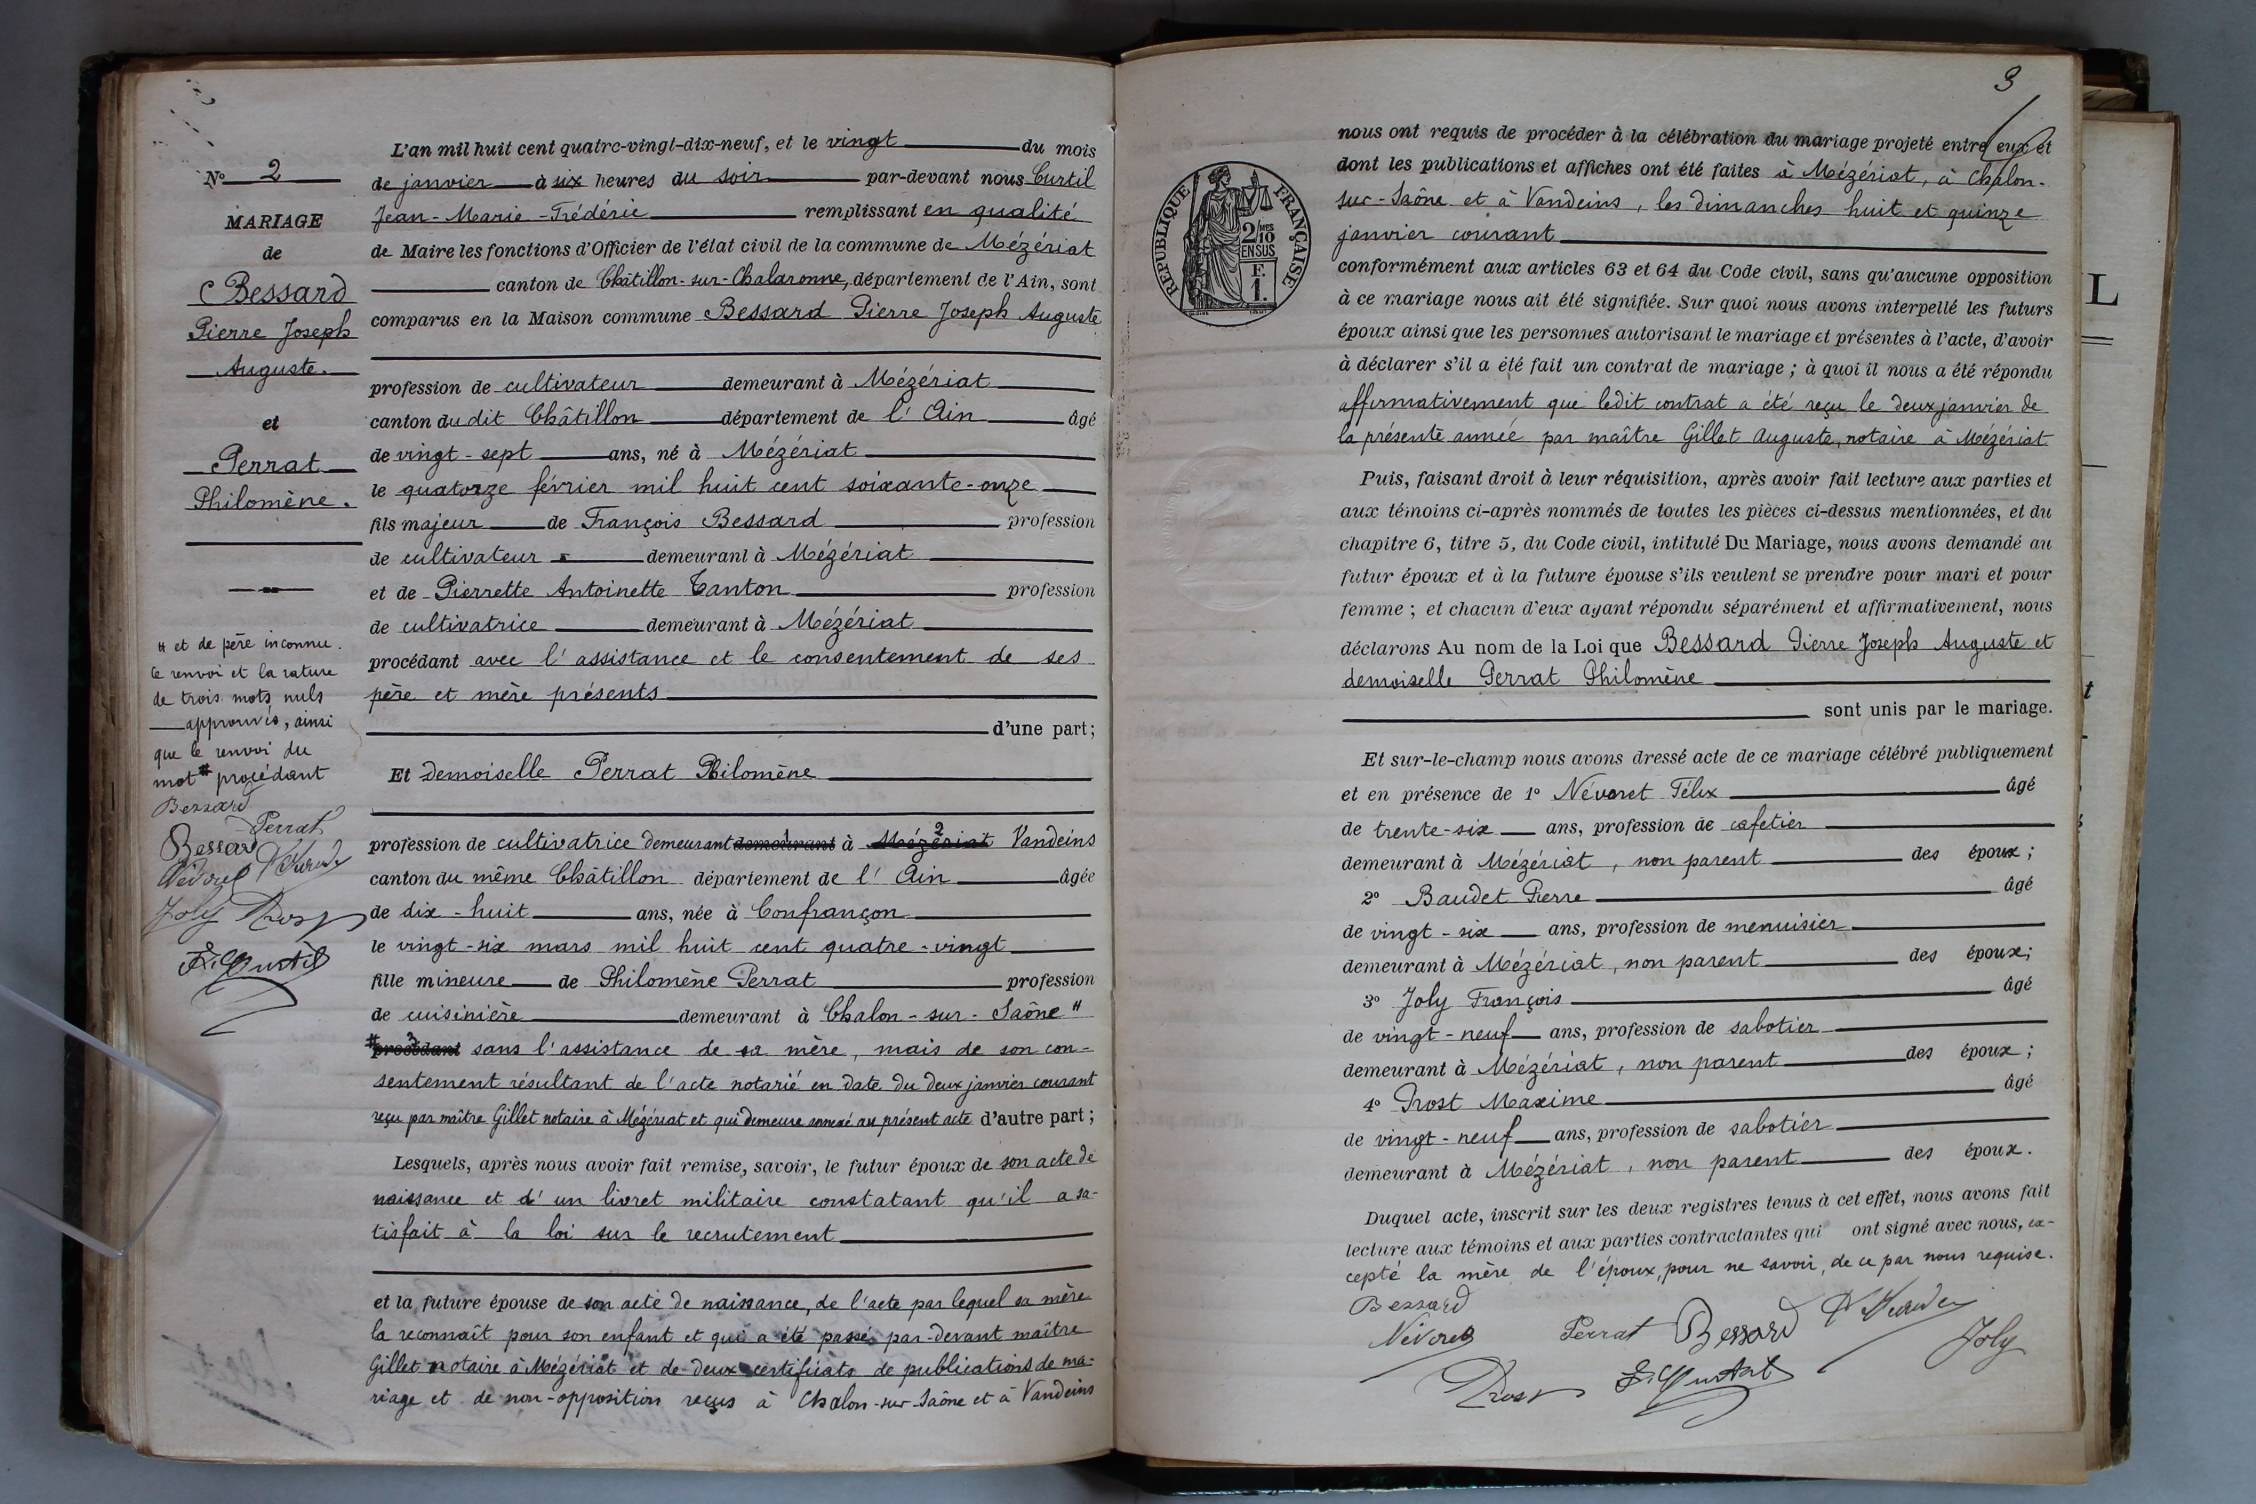 N° 2
MARIAGE
de
Bessard
Pierre Joseph
Auguste.
et
Perrat
Philomène.
# et de père inconnu.
Ce renvoi et la rature
de trois mots nuls
approuvés, ainsi
que le renvoi du
mot # procédant
Bessard
Perrat
Bessard
Névoret
Joly Prost
L'an mil huit cent quatre-vingt-dix-neuf, et le vingt du mois
de janvier à six heures du soir par-devant nous Curtil
Jean-Marie-Frédéric remplissant en qualité
de Maire les fonctions d'Officier de l'état civil de la commune de Mézériat
canton de Châtillon-sur-Chalaronne, département de l'Ain, sont
comparus en la Maison commune Bessard Pierre Joseph Auguste
profession de cultivateur demeurant à Mézériat
canton du dit Châtillon département de l'Ain âgé
de vingt-sept ans, né à Mézériat
le quatorze février mil huit cent soixante-onze
fils majeur de François Bessard profession
de cultivateur demeurant à Mézériat
et de Pierrette Antoinette Tanton profession
de cultivatrice demeurant à Mézériat
procédant avec l'assistance et le consentement de ses
père et mère présents
d'une part;
Et demoiselle Perrat Philomène
profession de cultivatrice demeurant demeurant à Mézériat Vandeins
canton du même Châtillon département de l'Ain âgée
de dix-huit ans, née à Confrançon
le vingt-six mars mil huit cent quatre-vingt
fille mineure de Philomène Perrat profession
de cuisinière demeurant à Chalon-sur-Saône #
# procédant sans l'assistance de sa mère, mais de son con-
sentement résultant de l'acte notarié en date du deux janvier courant
reçu par maître Gillet notaire à Mézériat et qui demeure annexé au présent acte d'autre part;
Lesquels, après nous avoir fait remise, savoir, le futur époux de son acte de
naissance et d'un livret militaire constatant qu'il a sa-
tisfait à la loi sur le recrutement
et la future épouse de son acte de naissance, de l'acte par lequel sa mère
la reconnaît pour son enfant et qui a été passé par-devant maître
Gillet notaire à Mézériat et de deux certificats de publications de ma-
riage et de non-opposition reçus à Chalon-sur-Saône et à Vandeins
3
RÉPUBLIQUE FRANÇAISE
2/10MES
EN SUS
F.
1.
nous ont requis de procéder à la célébration du mariage projeté entre eux et
dont les publications et affiches ont été faites à Mézériat, à Chalon-
sur-Saône et à Vandeins, les dimanches huit et quinze
janvier courant
conformément aux articles 63 et 64 du Code civil, sans qu'aucune opposition
à ce mariage nous ait été signifiée. Sur quoi nous avons interpellé les futurs
époux ainsi que les personnes autorisant le mariage et présentes à l'acte, d'avoir
à déclarer s'il a été fait un contrat de mariage; à quoi il nous a été répondu
affirmativement que ledit contrat a été reçu le deux janvier de
la présente année par maître Gillet Auguste, notaire à Mézériat
Puis, faisant droit à leur réquisition, après avoir fait lecture aux parties et
aux témoins ci-après nommés de toutes les pièces ci-dessus mentionnées, et du
chapitre 6, titre 5, du Code civil, intitulé Du Mariage, nous avons demandé au
futur époux et à la future épouse s'ils veulent se prendre pour mari et pour
femme; et chacun d'eux ayant répondu séparément et affirmativement, nous
déclarons Au nom de la Loi que Bessard Pierre Joseph Auguste et
demoiselle Perrat Philomène
sont unis par le mariage.
Et sur-le-champ nous avons dressé acte de ce mariage célébré publiquement
et en présence de 1° Névoret Félix âgé
de trente-six ans, profession de cafetier
demeurant à Mézériat, non parent des époux;
2° Baudet Pierre âgé
de vingt-six ans, profession de menuisier
demeurant à Mézériat, non parent des époux;
3° Joly François âgé
de vingt-neuf ans, profession de sabotier
demeurant à Mézériat, non parent des époux;
4° Prost Maxime âgé
de vingt-neuf ans, profession de sabotier
demeurant à Mézériat, non parent des époux.
Duquel acte, inscrit sur les deux registres tenus à cet effet, nous avons fait
lecture aux témoins et aux parties contractantes qui ont signé avec nous, ex-
cepté la mère de l'époux, pour ne savoir, de ce par nous requise.
Bessard
Névoret Perrat Bessard
Joly
Prost